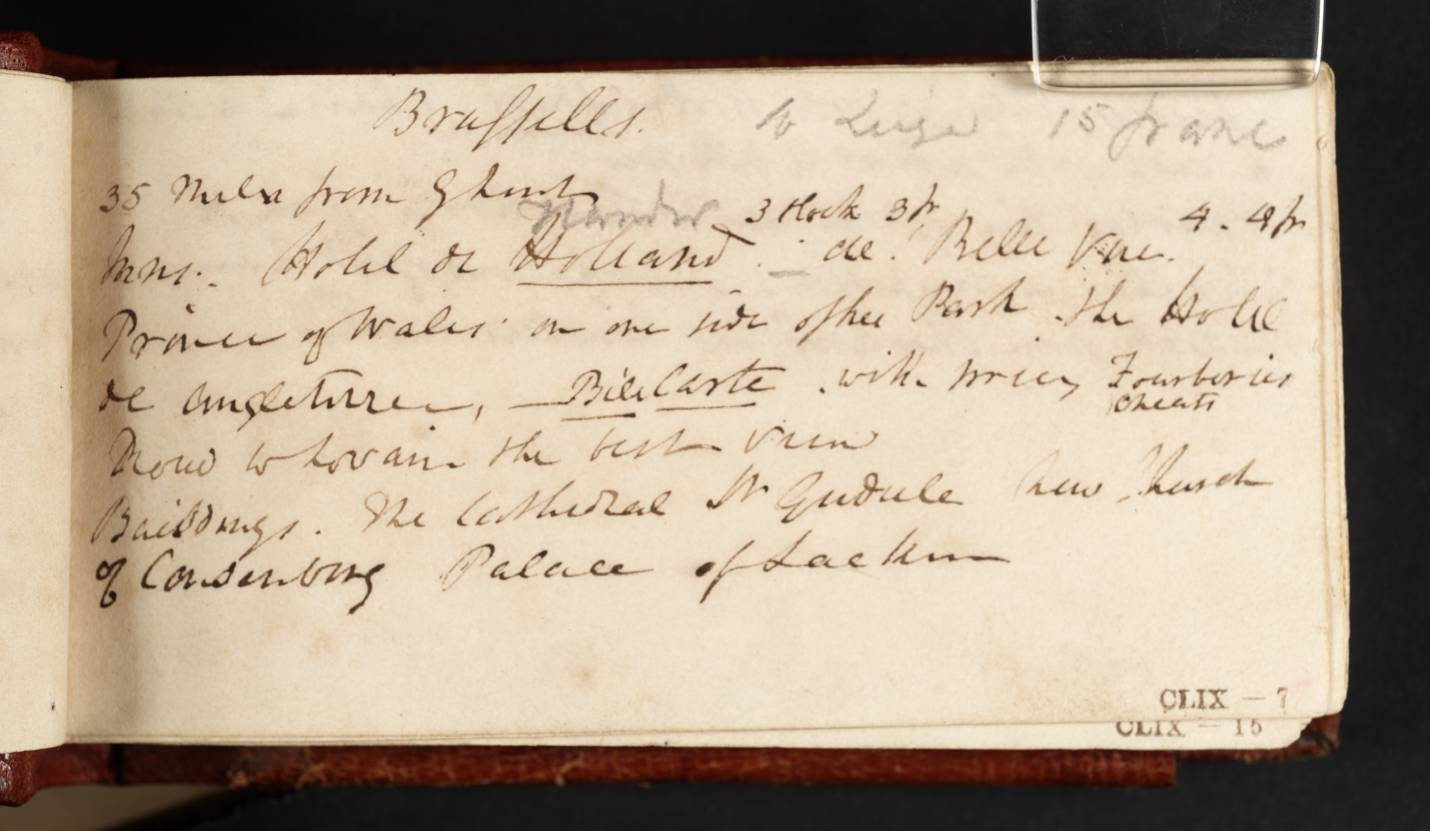 Brussells. to Liege 15 franc
35 Miles from Ghent
Flander 3 o'clock 3 fr 4 . 4 fr
Inns. Hotel de Holland . _ de . Belle Vue.
Prince of Wales. on one side of the Park . the Hotel
de Angleterre, — Bill Carte . with prices Fourberies
cheats
Road to Lovain the best View
Buildings. The Cathedral St Gudule new Church
of Caudenberg Palace of Lacken
CLIX — 7
CLIX — 15